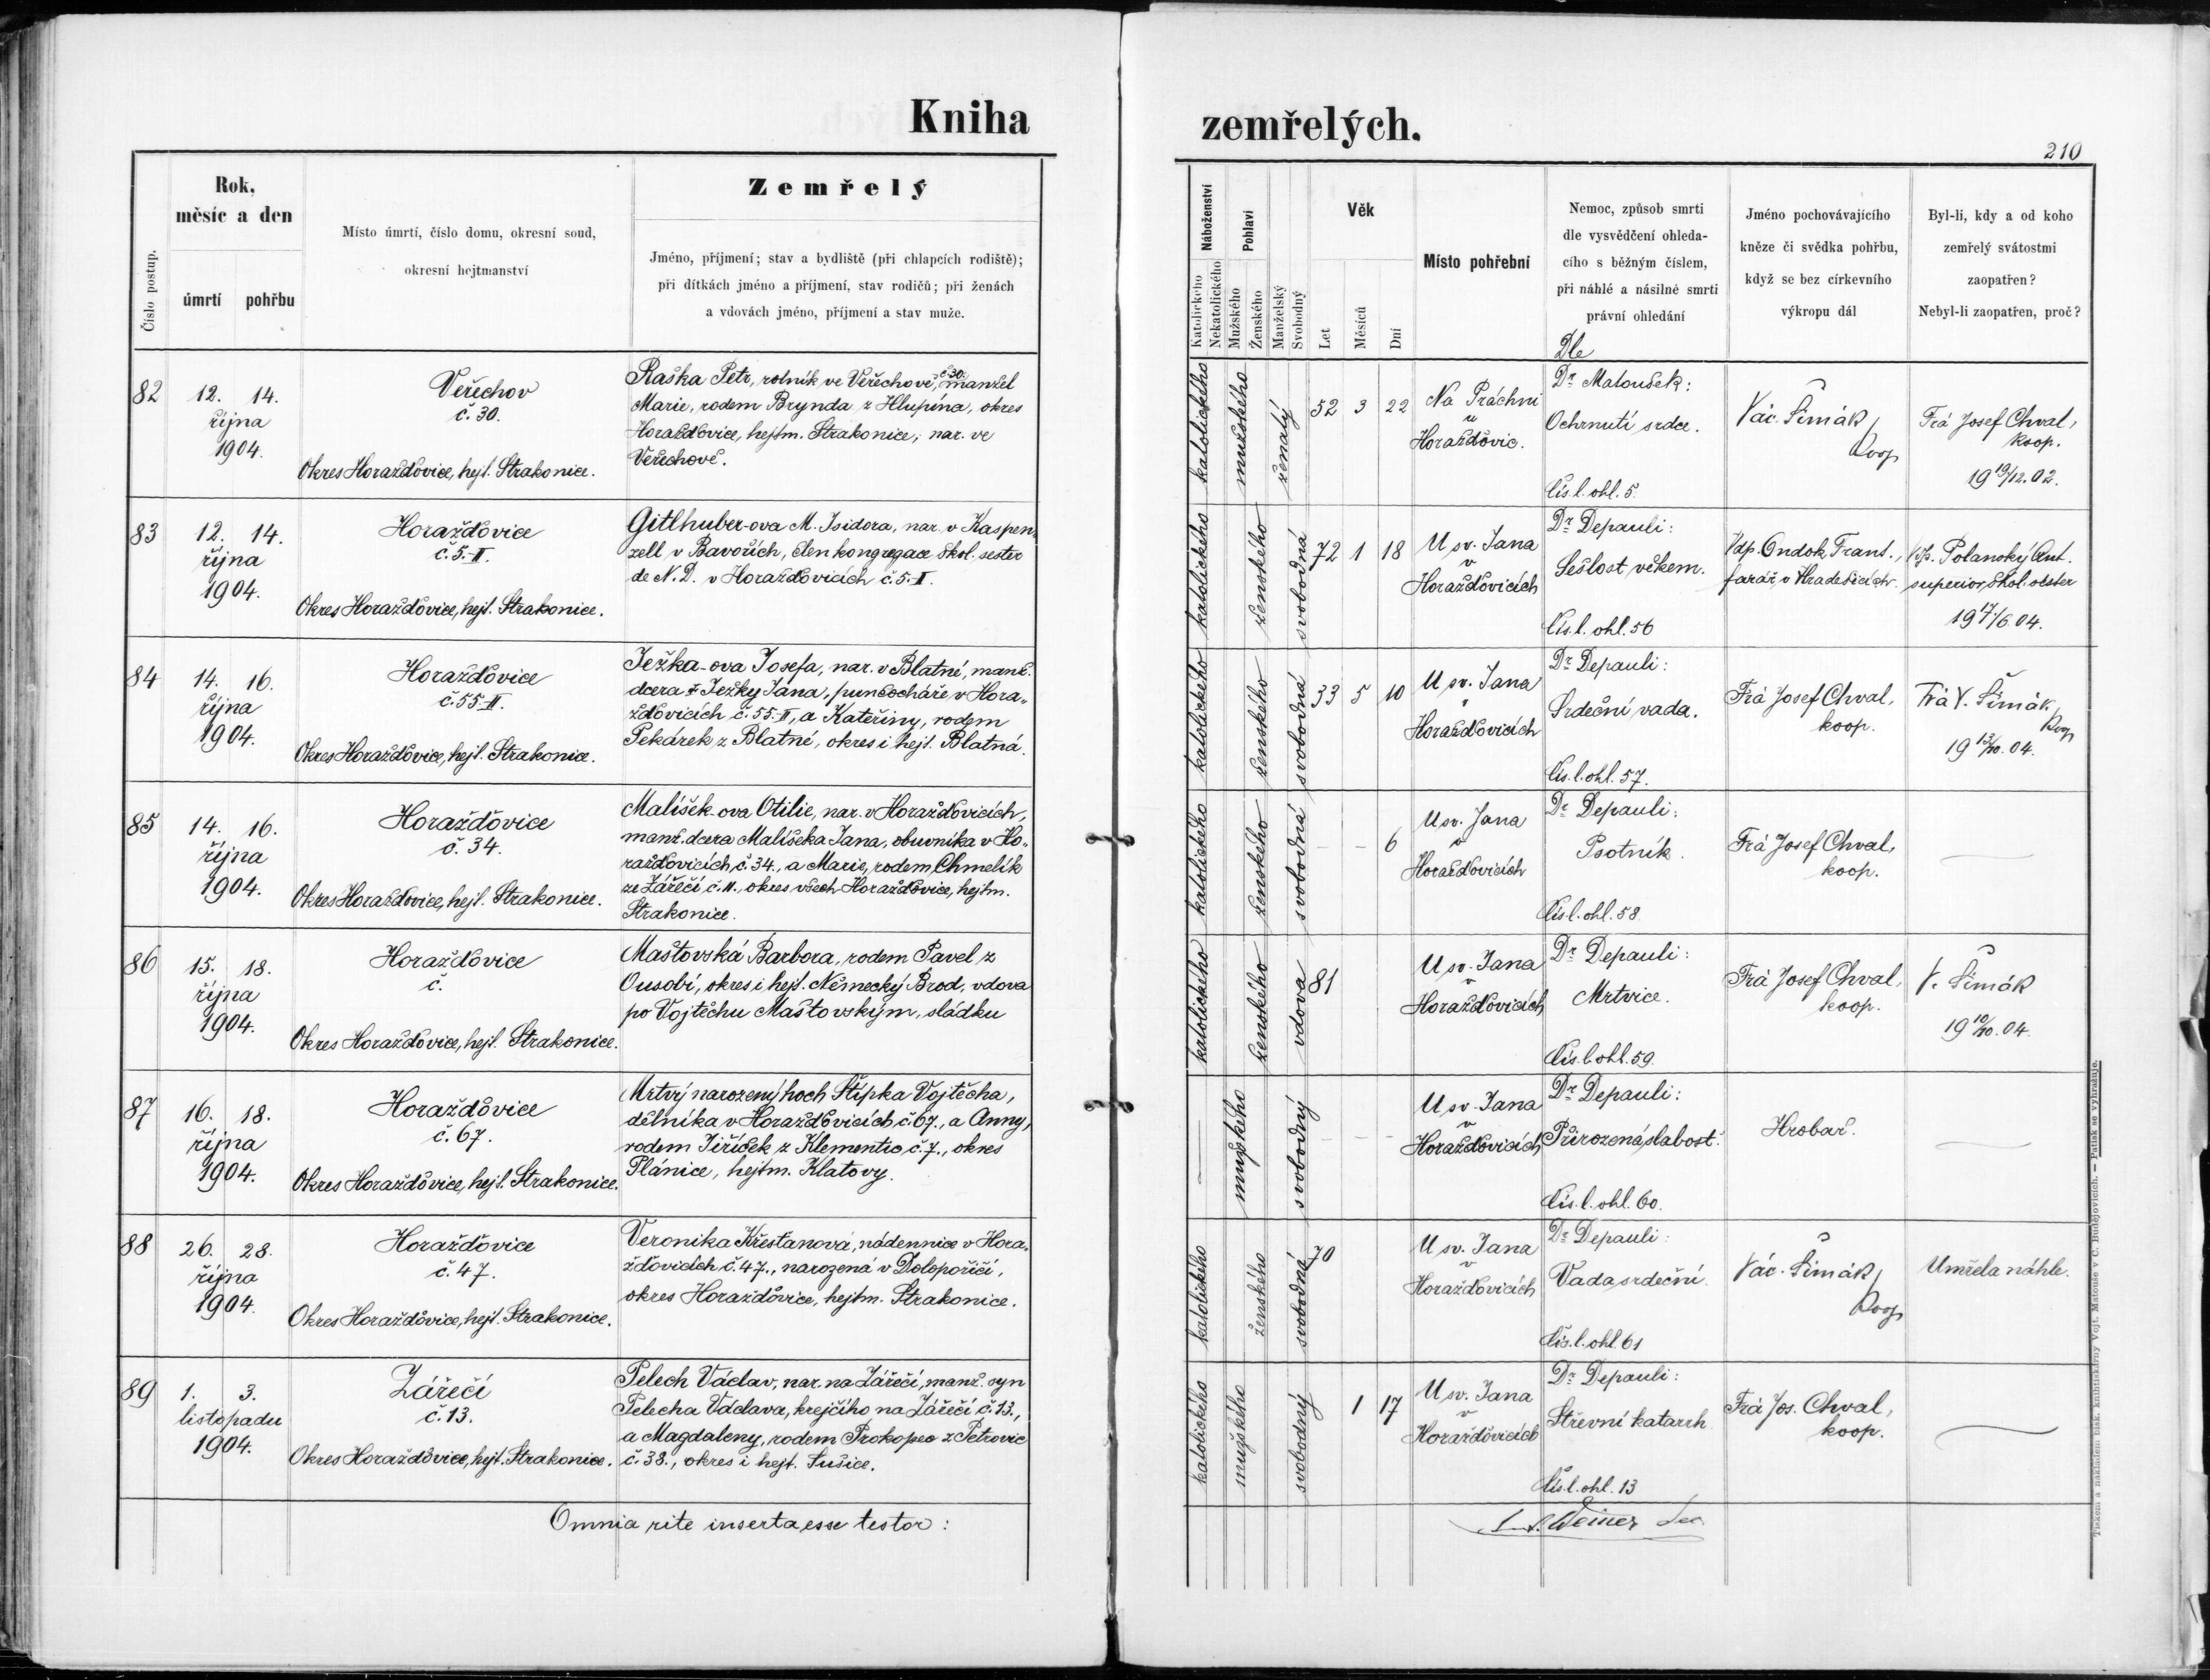 Kniha
zemřelých.
210
Číslo postup.
Rok,
měsíc a den
úmrtí pohřbu
Místo úmrtí, číslo domu, okresní soud,
okresní hejtmanství
Zemřelý
Jméno, příjmení; stav a bydliště (při chlapcích rodiště);
při dítkách jméno a příjmení, stav rodičů; při ženách
a vdovách jméno, příjmení a stav muže.
Náboženství
Katolického
Nekatolického
Pohlaví
Mužského
Ženského
Manželský
Svobodný
Věk
Let
Měsíců
Dní
Místo pohřební
Nemoc, způsob smrti
dle vysvědčení ohleda-
cího s běžným číslem,
při náhlé a násilné smrti
právní ohledání
Jméno pochovávajícího
kněze či svědka pohřbu,
když se bez církevního
výkropu dál
Byl-li, kdy a od koho
zemřelý svátostmi
zaopatřen?
Nebyl-li zaopatřen, proč?
Dle
82
12. 14.
října
1904.
Veřechov
č. 30.
Okres Horažďovice, hejt. Strakonice.
Raška Petr, rolník ve Veřechově, č 30. manžel
Marie, rodem Brynda z Hlupína, okres
Horažďovice, hejtm. Strakonice, nar. ve
Veřechově.
katolického
mužského
ženatý
52 3 22
Na Práchni
u
Horažďovic.
Dr. Matoušek:
Ochrnutí srdce.
Čís. l. ohl. 5.
Vác. Šimák,
koop
Frá Josef Chval,
koop.
19 19/12. 02.
83
12. 14.
října
1904.
Horažďovice
č. 5.-II.
Okres Horažďovice, hejt. Strakonice.
Gitlhuber-ova M. Isidora, nar. v Kaspen-
zell v Bavořích, člen kongregace škol. sester
de N. D. v Horažďovicích č. 5.-II.
katolického
ženského
svobodná
72 1 18
U sv. Jana
v
Horažďovicích
Dr. Depauli:
Sešlost věkem.
Čís. l. ohl. 56
Vdp. Ondok Frant.,
farář v Hradešicích.
Vdp. Polanský Ant.
superior škol. sester
19 17/6. 04.
84
14. 16.
října
1904.
Horažďovice
č. 55-II.
Okres Horažďovice, hejt. Strakonice.
Ježka-ova Josefa, nar. v Blatné, manž.
dcera † Ježky Jana, punčocháře v Hora-
žďovicích č. 55.-II, a Kateřiny, rodem
Pekárek z Blatné, okres i hejt. Blatná.
katolického
ženského
svobodná
33 5 10
U sv. Jana
v
Horažďovicích
Dr. Depauli:
Srdeční vada.
Čís. l. ohl. 57.
Frá Josef Chval,
koop.
Frá V. Šimák,
koop
19 13/10. 04.
85
14. 16.
října
1904.
Horažďovice
č. 34.
Okres Horažďovice, hejt. Strakonice.
Malíšek-ova Otilie, nar. v Horažďovicích,
manž. dcera Malíšeka Jana, obuvníka v Ho-
ražďovicích, č. 34., a Marie, rodem Chmelík
ze Zářečí, č. 11., okres všech Horažďovice, hejtm.
Strakonice.
katolického
ženského
svobodná
– – 6
U sv. Jana
v
Horažďovicích
Dr. Depauli:
Psotník.
Čís. l. ohl. 58
Frá Josef Chval,
koop.
86
15. 18.
října
1904.
Horažďovice
č.
Okres Horažďovice, hejt. Strakonice.
Maštovská Barbora, rodem Pavel z
Ousobí, okres i hejt. Německý Brod, vdova
po Vojtěchu Maštovským, sládku
katolického
ženského
vdova
81
U sv. Jana
v
Horažďovicích
Dr. Depauli:
Mrtvice.
Čís. l. ohl. 59.
Frá Josef Chval,
koop.
V. Šimák
19 10/10. 04.
87
16. 18.
října
1904.
Horažďovice
č. 67.
Okres Horažďovice, hejt. Strakonice.
Mrtvý narozený hoch Štípka Vojtěcha,
dělníka v Horažďovicích č. 67., a Anny,
rodem Jiříček z Klementic č. 7., okres
Plánice, hejtm. Klatovy.
mužského
svobodný
– – –
U sv. Jana
v
Horažďovicích
Dr. Depauli:
Přirozená slabost.
Čís. l. ohl. 60.
Hrobař.
88
26. 28.
října
1904.
Horažďovice
č. 47.
Okres Horažďovice, hejt. Strakonice.
Veronika Křesťanová, nádennice v Hora-
žďovicích č. 47., narozená v Dolopořičí,
okres Horažďovice, hejtm. Strakonice.
katolického
ženského
svobodná
70
U sv. Jana
v
Horažďovicích
Dr. Depauli:
Vada srdeční.
Čís. l. ohl. 61
Vác. Šimák,
koop
Umřela náhle.
89
1. 3.
listopadu
1904.
Zářečí
č. 13.
Okres Horažďovice, hejt. Strakonice.
Pelech Václav, nar. na Zářečí, manž. syn
Pelecha Václava, krejčího na Zářečí č. 13.,
a Magdaleny, rodem Prokopec z Petrovic
č. 38., okres i hejt. Sušice.
katolického
mužského
svobodný
1 17
U sv. Jana
v
Horažďovicích
Dr. Depauli:
Střevní katarrh
Čís. l. ohl. 13
Frá Jos. Chval,
koop.
Omnia rite inserta esse testor:
Weiner
Tiskem a nákladem bisk. knihtiskárny Vojt. Matouše v Č. Budějovicích. — Patisk se vyhražuje.